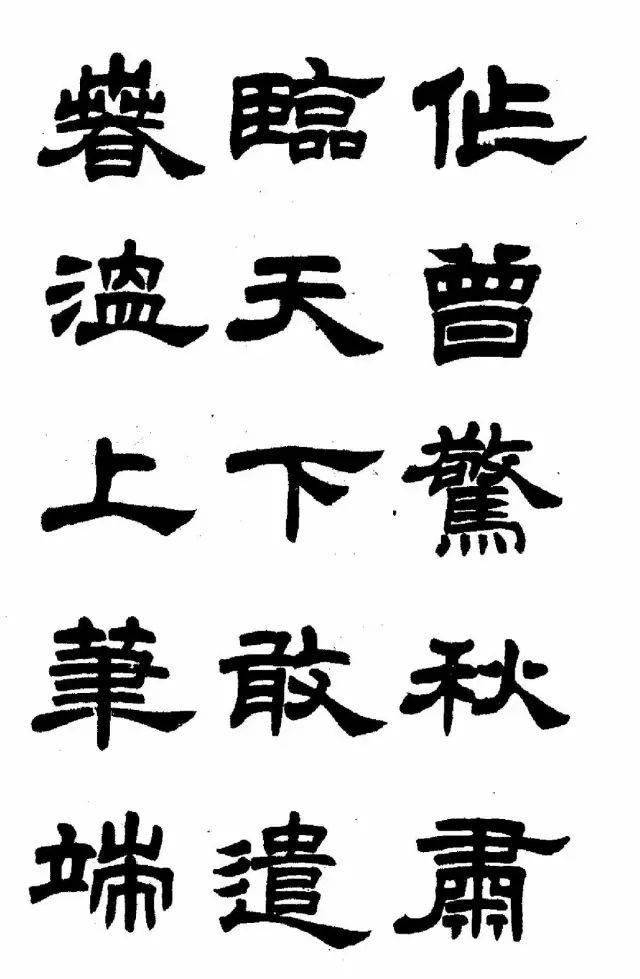 作曾驚秋肅
臨天下敢遣
春溫上筆端